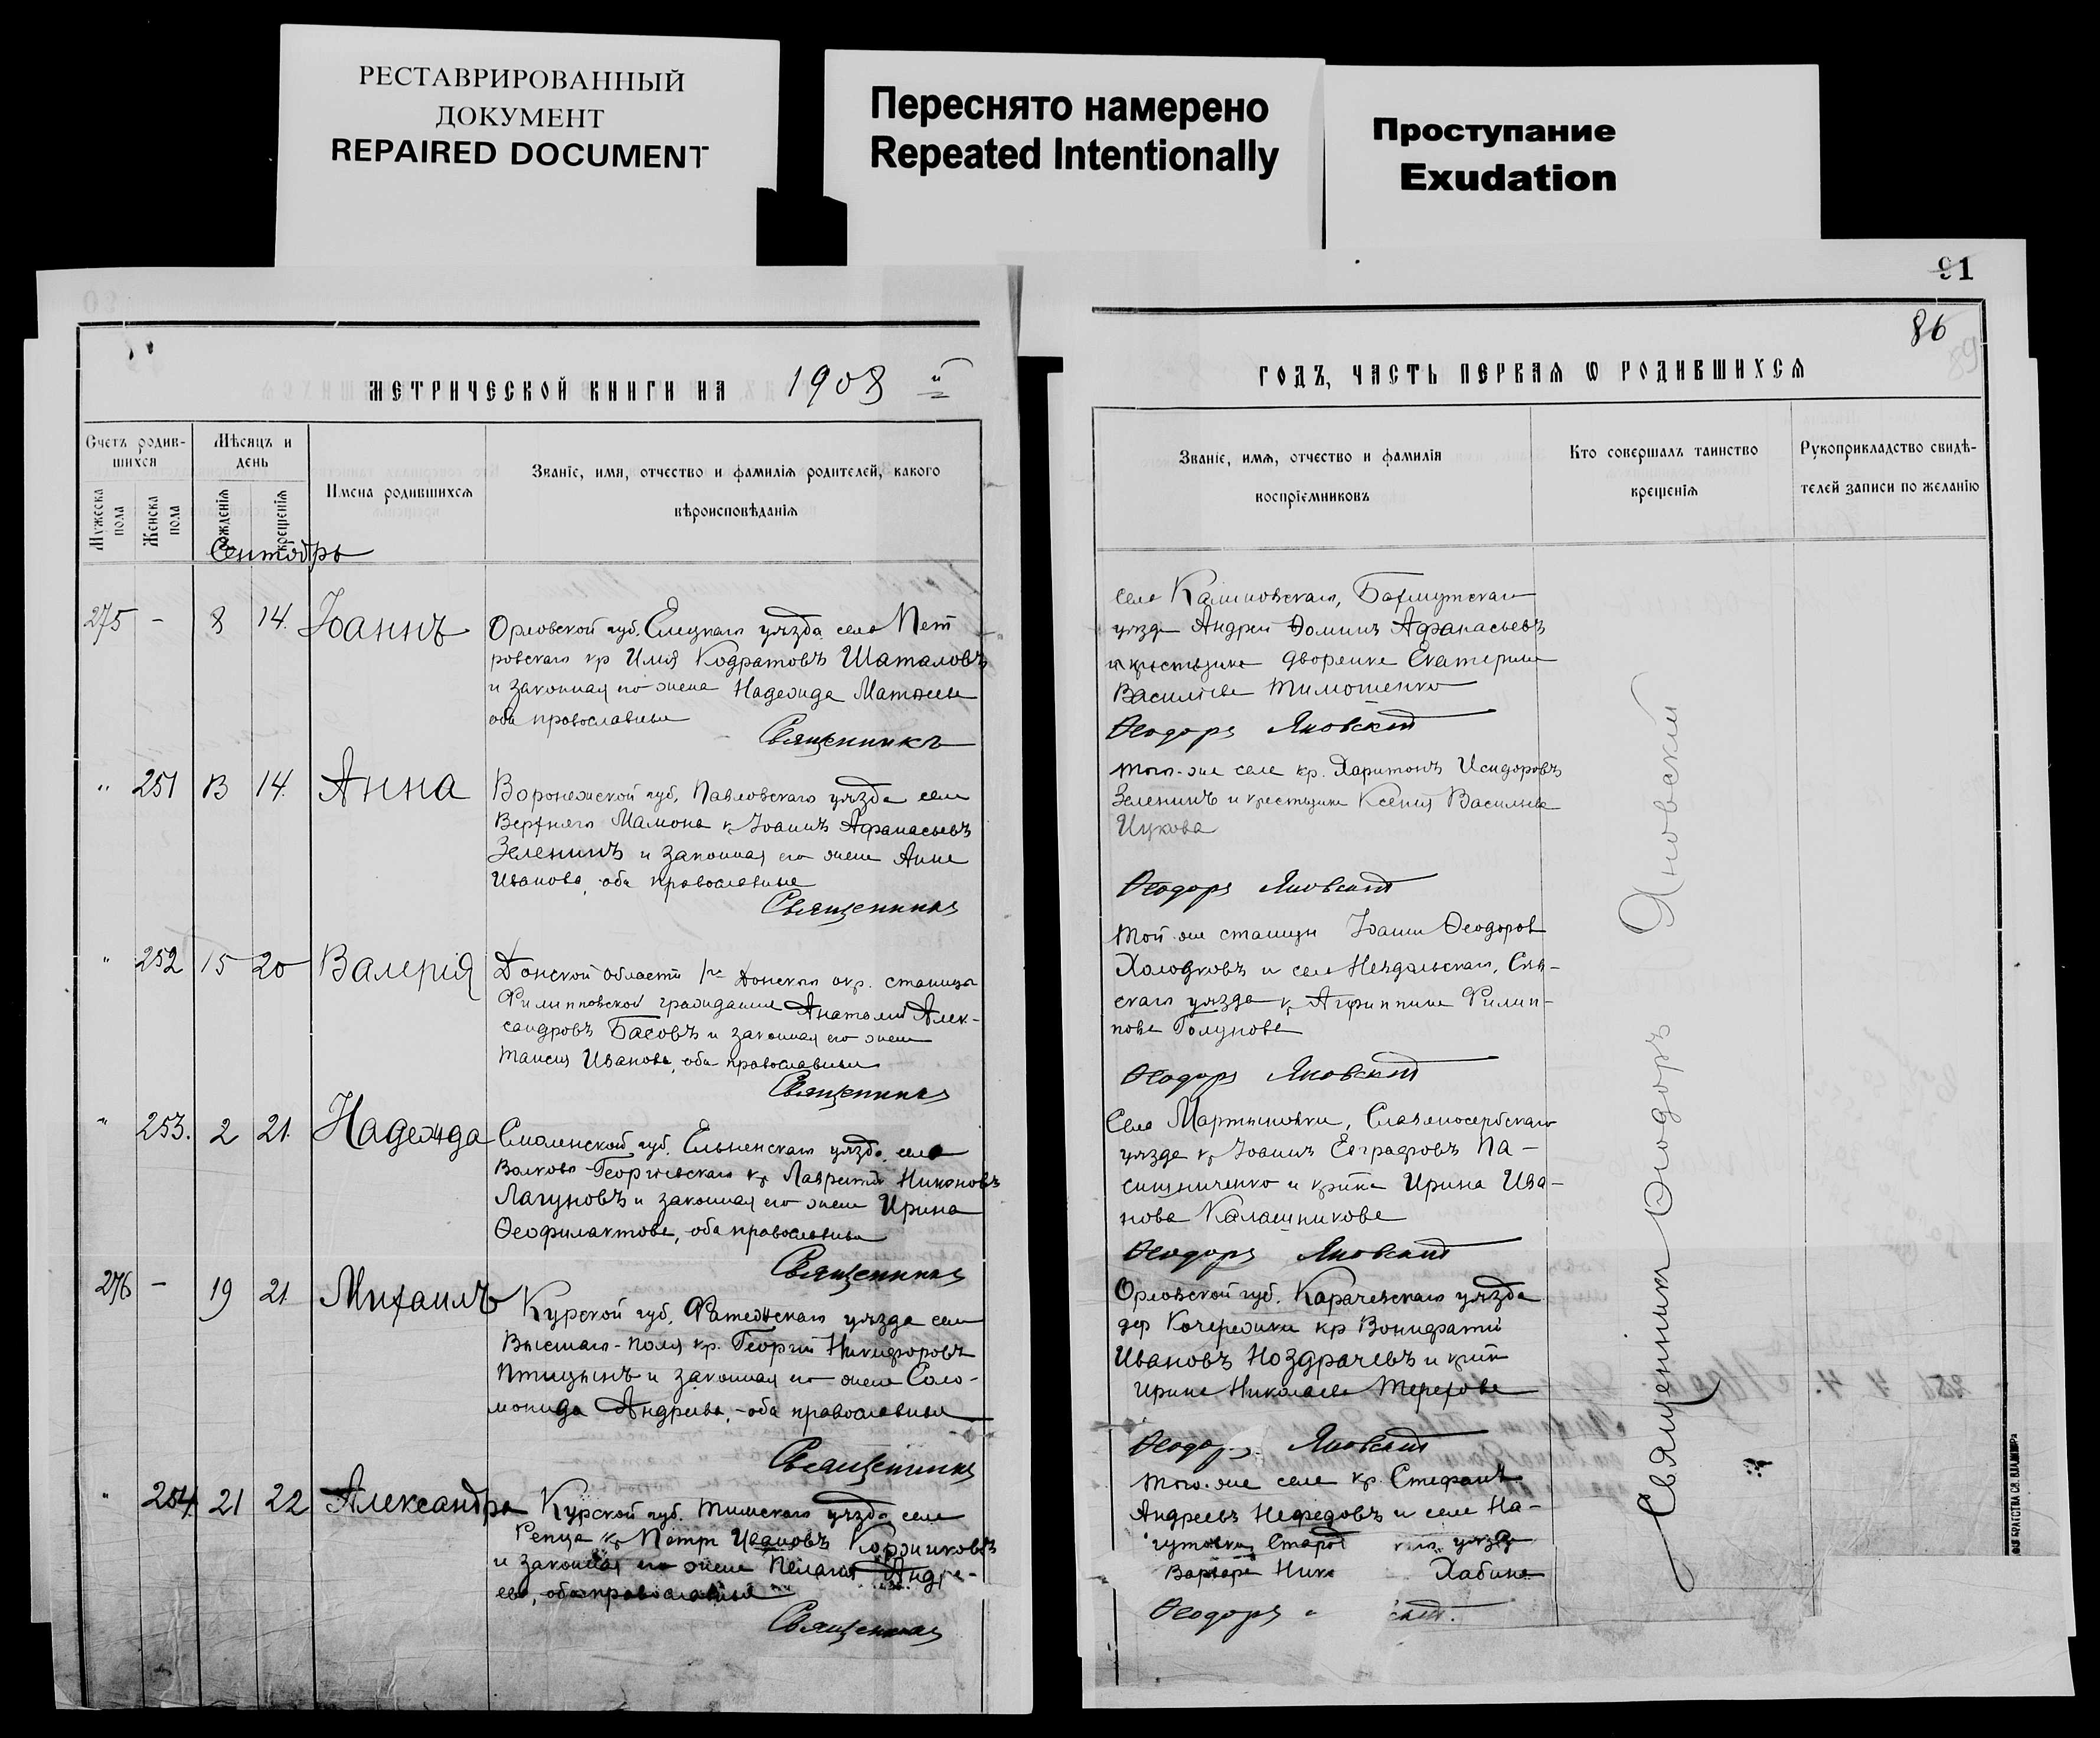 РЕСТАВРИРОВАННЫЙ
ДОКУМЕНТ
REPAIRED DOCUMENT
Переснято намерено
Repeated Intentionally
Проступание
Exudation
91
86
МЕТРИЧЕСКОЙ КНИГИ НА 1908 й
Счетъ родив-
шихся
Мужеска
пола
Женска
пола
Мѣсяцъ и
день
рожденія
крещенія
Имена родившихся
Званіе, имя, отчество и фамилія родителей, какого
вѣроисповѣданія
Сентябрь
275 - 8 14. Іоаннъ
Орловской губ. Елецкаго уѣзда села Пет
ровскаго кр Илія Кодратовъ Шаталовъ
и законная его жена Надежда
оба православные
Священникъ
" 251 13 14. Анна
Воронежской губ. Павловскаго уѣзда села
Верхняго Мамона кр Іоаннъ Афанасьевъ
Зеленинъ и законная его жена Анна
Иванова, оба православные
Священникъ
" 252 15 20 Валерія
Донской области 1го Донского окр. станицы
Филипповской гражданинъ Анатолий Алек-
сандровъ Басовъ и законная его жена
Таисия Иванова, оба православные
Священникъ
" 253. 2 21. Надежда
Смоленской губ. Ельненскаго уѣзда села
Волково-Георгиевскаго кр Лаврентий Никоновъ
Лагуновъ и законная его жена Ирина
Феофилактова, оба православные
Священникъ
276 - 19 21 Михаилъ
Курской губ. Фатежскаго уѣзда села
поля кр. Георгий Никифоровъ
Птицынъ и законная его жена Соло-
монида Андреева, - оба православные
Священникъ
" 254. 21 22 Александра
Курской губ. Тимскаго уѣзда села
Репца кр Петръ Ивановъ
и законная его жена Пелагия Андре-
ева, оба православные
Священникъ
ГОДЪ, ЧАСТЬ ПЕРВАЯ Ѡ РОДИВШИХСЯ
Званіе, имя, отчество и фамилія
воспріемниковъ
Кто совершалъ таинство
крещенія
Рукоприкладство свидѣ-
телей записи по желанію
села Калиновскаго, Бахмутскаго
уѣзда Андрей Фоминъ Афанасьевъ
дворянка Екатерина
Васильева Тимошенко
Феодоръ Яновскій
того-же села кр. Харитонъ Исидоровъ
Зеленинъ и крестьянка Ксения Васильева
Феодоръ Яновскій
Той же станицы Іоаннъ Феодоров
Холодковъ и села
скаго уѣзда кр Агриппина Филип-
пова Голунова
Феодоръ Яновскій
Села Мартыновки, Славяносербскаго
уѣзда кр Іоаннъ Евграфовъ Па-
сишниченко и кр-нка Ирина Ива-
нова Калашникова
Феодоръ Яновскій
Орловской губ. Карачевскаго уѣзда
дер кр Вонифатий
Ивановъ Ноздрачевъ и кр-нка
Ирина Николаева Терехова
Феодоръ Яновскій
того-же села кр. Стефанъ
Андреевъ Нефедовъ и села На-
гутовки, Старо уѣзда
Варвара Ник Хабина
Феодоръ скій.
Священникъ Феодоръ Яновский